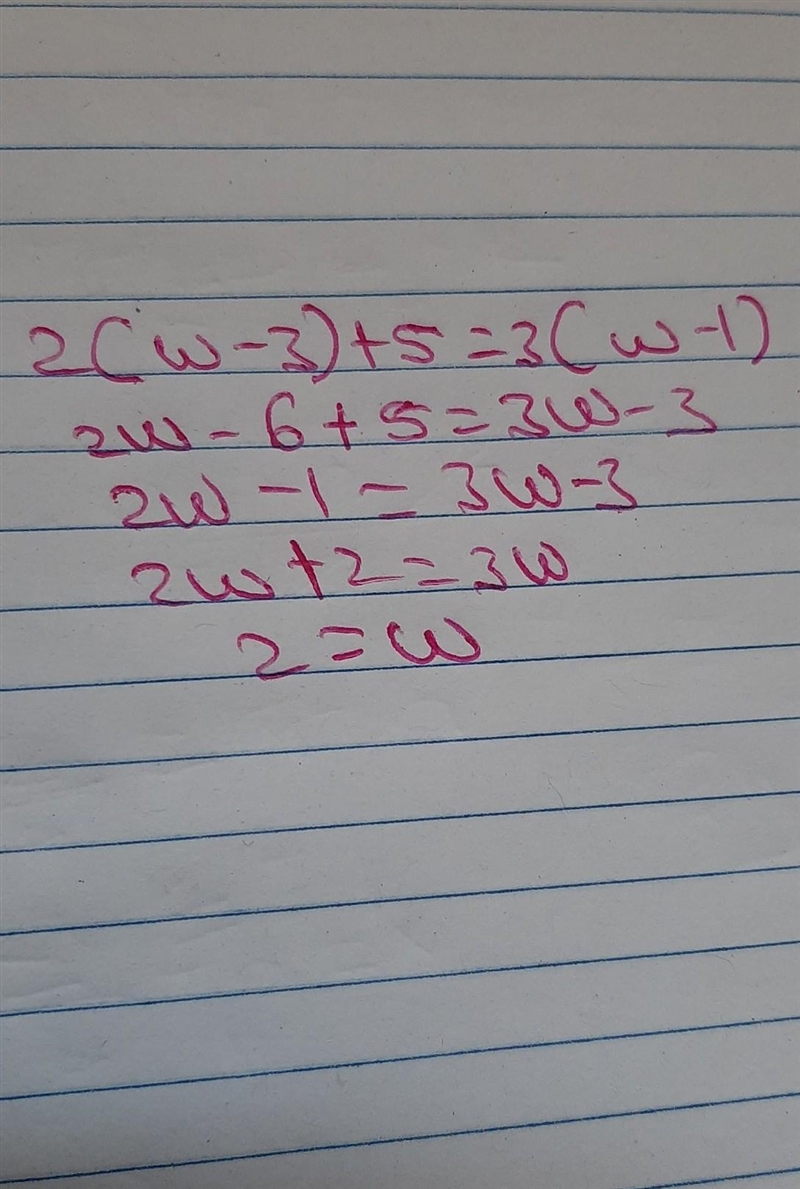 2(w-3)+5=3(w-1)
2w-6+5=3w-3
2w-1=3w-3
2w+2=3w
2=w